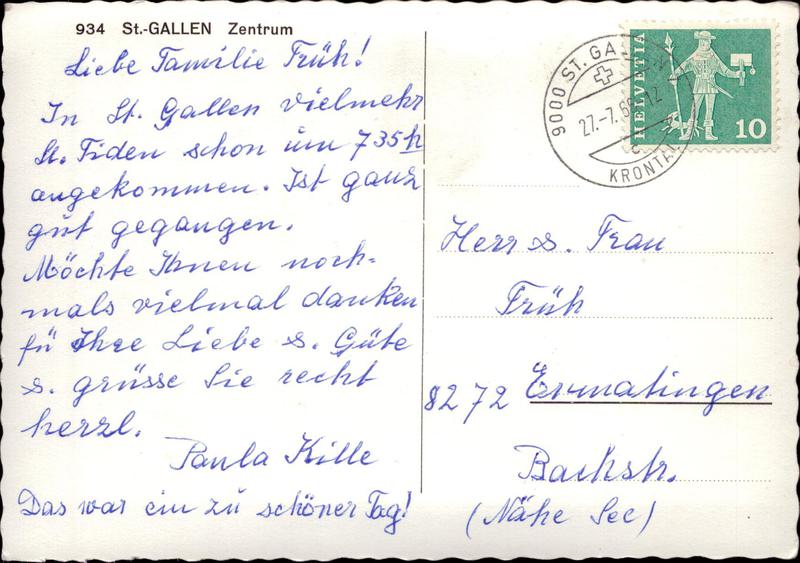 934 St.-GALLEN Zentrum
Liebe Familie Früh!
In St. Gallen vielmehr
St. Fiden schon um 7 35 h
angekommen. Ist ganz
gut gegangen.
Möchte Ihnen noch-
mals vielmal danken
fü Ihre Liebe u. Güte
u. grüsse Sie recht
herzl.
Paula Kille
Das war ein zu schöner Tag!
HELVETIA
10
9000 ST. GALLEN
27.-7.68-12
KRONTAL
Herr u. Frau
Früh
8272 Ermatingen
Bachstr.
(Nähe See)